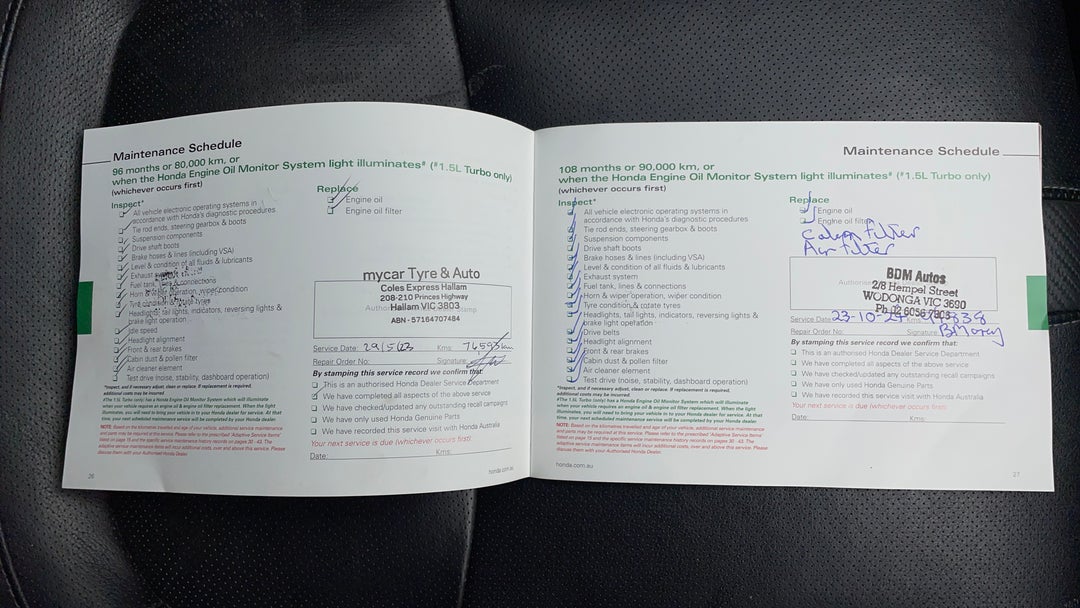 Maintenance Schedule
96 months or 80,000 km, or
when the Honda Engine Oil Monitor System light illuminates# (#1.5L Turbo only)
(whichever occurs first)
Inspect*
All vehicle electronic operating systems in
accordance with Honda's diagnostic procedures
Tie rod ends, steering gearbox & boots
Suspension components
Drive shaft boots
Brake hoses & lines (including VSA)
Level & condition of all fluids & lubricants
Exhaust system
Fuel tank, lines & connections
Horn & wiper operation, wiper condition
Tyre condition & rotate tyres
Headlights, tail lights, indicators, reversing lights &
brake light operation
Idle speed
Headlight alignment
Front & rear brakes
Cabin dust & pollen filter
Air cleaner element
Test drive (noise, stability, dashboard operation)
*Inspect, and if necessary adjust, clean or replace. If replacement is required,
additional costs may be incurred.
#The 1.5L Turbo (only) has a Honda Engine Oil Monitor System which will illuminate
when your vehicle requires an engine oil & engine oil filter replacement. When the light
illuminates, you will need to bring your vehicle in to your Honda dealer for service. At that
time, your next scheduled maintenance service will be completed by your Honda dealer.
NOTE: Based on the kilometres travelled and age of your vehicle, additional service maintenance
and parts may be required at this service. Please refer to the prescribed "Adaptive Service Items"
listed on page 15 and the specific service maintenance history records on pages 30 - 43. The
adaptive service maintenance items will incur additional costs, over and above this service. Please
discuss them with your Authorised Honda Dealer.
26
Replace
Engine oil
Engine oil filter
mycar Tyre & Auto
Coles Express Hallam
208-210 Princes Highway
Hallam VIC 3803
ABN - 57164707484
Service Date: 29/5/23 Kms: 76593km
Repair Order No: Signature:
By stamping this service record we confirm that:
This is an authorised Honda Dealer Service Department
We have completed all aspects of the above service
We have checked/updated any outstanding recall campaigns
We have only used Honda Genuine Parts
We have recorded this service visit with Honda Australia
Your next service is due (whichever occurs first):
Date: Kms:
honda.com.au
Maintenance Schedule
108 months or 90,000 km, or
when the Honda Engine Oil Monitor System light illuminates# (#1.5L Turbo only)
(whichever occurs first)
Inspect*
All vehicle electronic operating systems in
accordance with Honda's diagnostic procedures
Tie rod ends, steering gearbox & boots
Suspension components
Drive shaft boots
Brake hoses & lines (including VSA)
Level & condition of all fluids & lubricants
Exhaust system
Fuel tank, lines & connections
Horn & wiper operation, wiper condition
Tyre condition & rotate tyres
Headlights, tail lights, indicators, reversing lights &
brake light operation
Drive belts
Headlight alignment
Front & rear brakes
Cabin dust & pollen filter
Air cleaner element
Test drive (noise, stability, dashboard operation)
*Inspect, and if necessary adjust, clean or replace. If replacement is required,
additional costs may be incurred.
#The 1.5L Turbo (only) has a Honda Engine Oil Monitor System which will illuminate
when your vehicle requires an engine oil & engine oil filter replacement. When the light
illuminates, you will need to bring your vehicle in to your Honda dealer for service. At that
time, your next scheduled maintenance service will be completed by your Honda dealer.
NOTE: Based on the kilometres travelled and age of your vehicle, additional service maintenance
and parts may be required at this service. Please refer to the prescribed "Adaptive Service Items"
listed on page 15 and the specific service maintenance history records on pages 30 - 43. The
adaptive service maintenance items will incur additional costs, over and above this service. Please
discuss them with your Authorised Honda Dealer.
honda.com.au
Replace
Engine oil
Engine oil filter
filter
Air filter
BDM Autos
2/8 Hempel Street
WODONGA VIC 3690
Service Date: 23-10-24
Repair Order No: Signature:
By stamping this service record we confirm that:
This is an authorised Honda Dealer Service Department
We have completed all aspects of the above service
We have checked/updated any outstanding recall campaigns
We have only used Honda Genuine Parts
We have recorded this service visit with Honda Australia
Your next service is due (whichever occurs first):
Date: Kms:
27